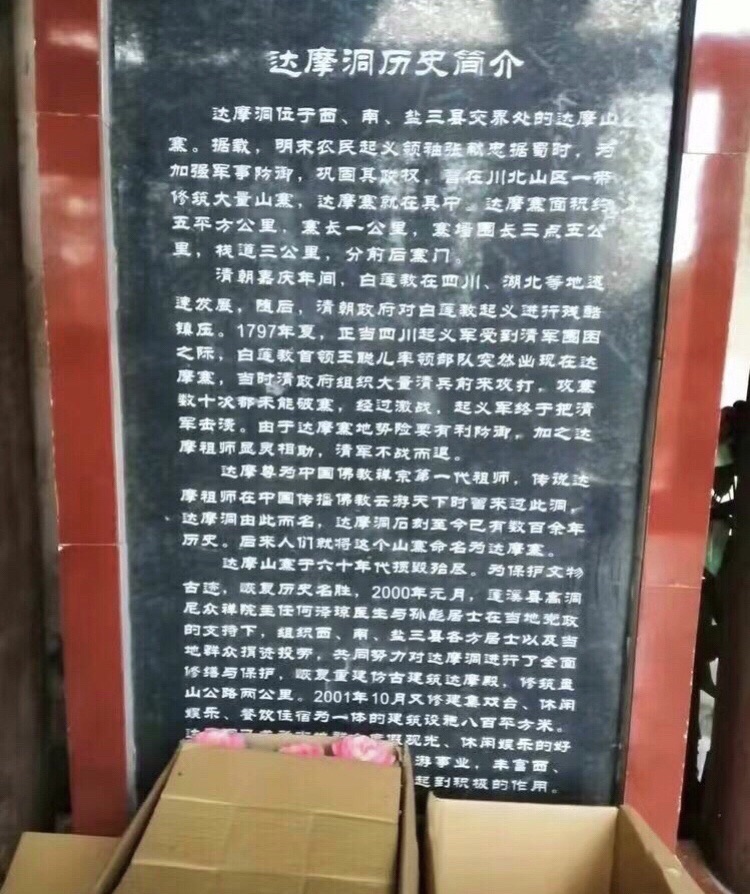 达摩洞历史简介
达摩洞位于西、南、盐三县交界处的达摩山
寨。据载，明末农民起义领袖张献忠据蜀时，为
加强军事防御，巩固其政权，曾在川北山区一带
修筑大量山寨，达摩寨就在其中。达摩寨面积约
五平方公里，寨长一公里，寨墙围长三点五公
里，栈道三公里，分前后寨门。
清朝嘉庆年间，白莲教在四川、湖北等地迅
速发展，随后，清朝政府对白莲教起义进行残酷
镇压。1797年夏，正当四川起义军受到清军围困
之际，白莲教首领王聪儿率领部队突然出现在达
摩寨，当时清政府组织大量清兵前来攻打，攻寨
数十次都未能破寨，经过激战，起义军终于把清
军击溃。由于达摩寨地势险要有利防御，加之达
摩祖师显灵相助，清军不战而退。
达摩尊为中国佛教禅宗第一代祖师，传说达
摩祖师在中国传播佛教云游天下时曾来过此洞，
达摩洞由此而名，达摩洞石刻至今已有数百余年
历史。后来人们就将这个山寨命名为达摩寨。
达摩山寨于六十年代损毁殆尽。为保护文物
古迹，恢复历史名胜，2000年元月，蓬溪县高洞
尼众禅院主任何泽琼医生与孙彪居士在当地党政
的支持下，组织西、南、盐三县各方居士以及当
地群众捐资投劳，共同努力对达摩洞进行了全面
修缮与保护，恢复重建仿古建筑达摩殿，修筑盘
山公路两公里。2001年10月又修建集戏台、休闲
娱乐、餐饮住宿为一体的建筑设施八百平方米。
观光、休闲娱乐的好
游事业，丰富西、
起到积极的作用。